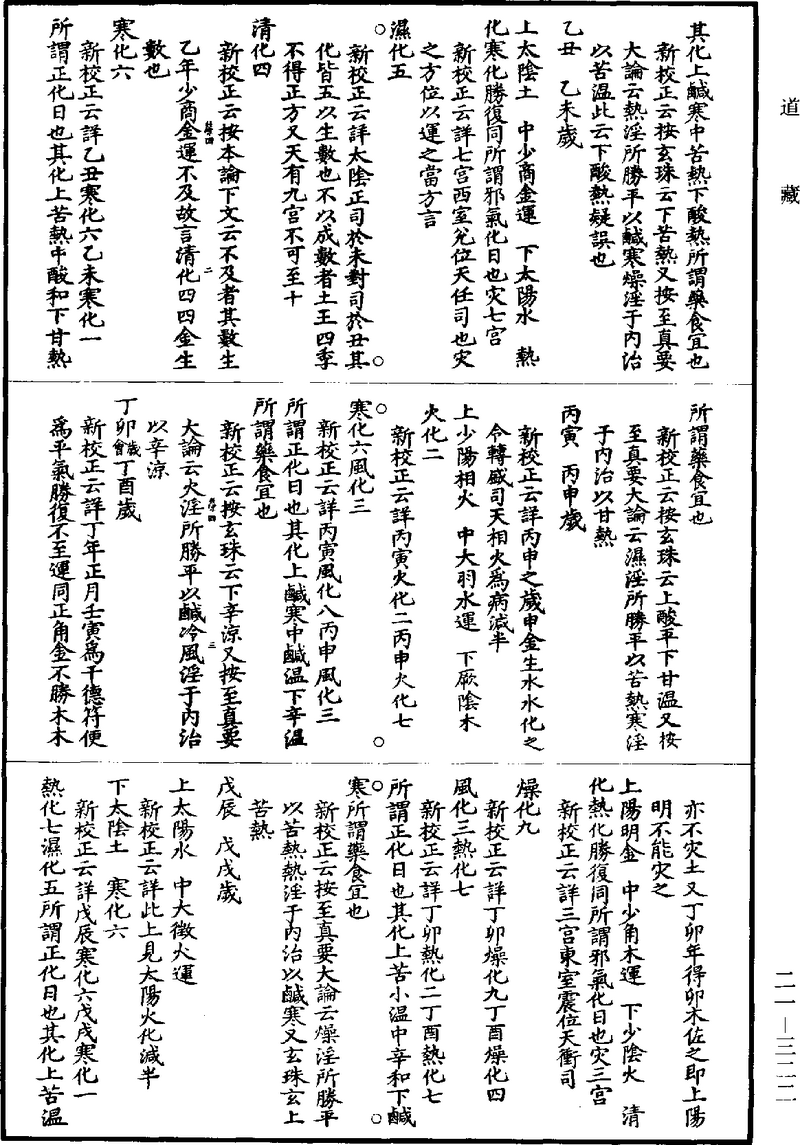 道藏
其化上鹹寒中苦熱下酸熱所謂藥食宜也
新校正云按玄珠云下苦熱又按至真要
大論云熱淫所勝平以鹹寒燥淫于內治
以苦溫此云下酸熱疑誤也
乙丑　乙未歲
上太陰土　中少商金運　下太陽水　熱
化寒化勝復同所謂邪氣化日也灾七宮
新校正云詳七宮西室兌位天任司也灾
之方位以運之當方言
濕化五
新校正云詳太陰正司於未對司於丑其
化皆五以生數也不以成數者土王四季
不得正方又天有九宮不可至十
清化四
新校正云按本論下文云不及者其數生
乙年少商金運不及故言清化四四金生
數也
寒化六
新校正云詳乙丑寒化六乙未寒化一
所謂正化日也其化上苦熱中酸和下甘熱
所謂藥食宜也
新校正云按玄珠云上酸平下甘溫又按
至真要大論云濕淫所勝平以苦熱寒淫
于內治以甘熱
丙寅　丙申歲
新校正云詳丙申之歲申金生水水化之
令轉盛司天相火爲病減半
上少陽相火　中大羽水運　下厥陰木
火化二
新校正云詳丙寅火化二丙申火化七
寒化六風化三
新校正云詳丙寅風化八丙申風化三
所謂正化日也其化上鹹寒中鹹溫下辛溫
所謂藥食宜也
新校正云按玄珠云下辛涼又按至真要
大論云火淫所勝平以鹹冷風淫于內治
以辛涼
丁卯歲會丁酉歲
新校正云詳丁年正月壬寅爲干德符便
爲平氣勝復不至運同正角金不勝木木
亦不灾土又丁卯年得卯木佐之即上陽
明不能灾之
上陽明金　中少角木運　下少陰火　清
化熱化勝復同所謂邪氣化日也灾三宮
新校正云詳三宮東室震位天衝司
燥化九
新校正云詳丁卯燥化九丁酉燥化四
風化三熱化七
新校正云詳丁卯熱化二丁酉熱化七
所謂正化日也其化上苦小溫中辛和下鹹
寒所謂藥食宜也
新校正云按至真要大論云燥淫所勝平
以苦熱熱淫于內治以鹹寒又玄珠云上
苦熱
戊辰　戊戌歲
上太陽水　中大徵火運
新校正云詳此上見太陽火化減半
下太陰土　寒化六
新校正云詳戊辰寒化六戊戌寒化一
熱化七濕化五所謂正化日也其化上苦溫
二一—三二二